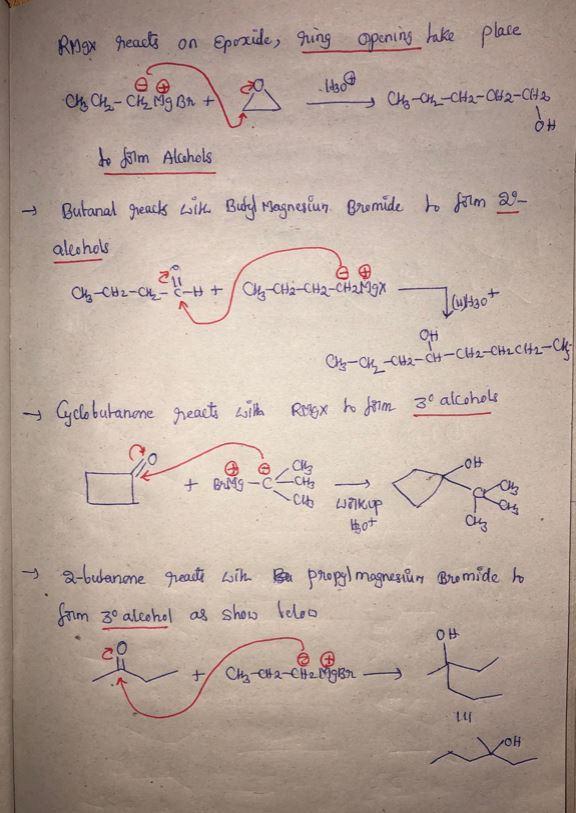 RMgx reacts on Epoxide, ring opening take place
⊖ ⊕
CH3 CH2 - CH2 MgBr + O H3O⊕ → CH3-CH2-CH2-CH2-CH2
OH
to form Alcohols
→ Butanal reacts with Butyl Magnesium Bromide to form 2°-
alcohols
O ⊖ ⊕
CH3-CH2-CH2-C-H + CH3-CH2-CH2-CH2MgX (H)H3O+
OH
CH3-CH2-CH2-CH-CH2-CH2CH2-CH3
→ Cyclobutanone reacts with RMgX to form 3° alcohols
O ⊕ ⊖ CH3 OH
+ BrMg-C-CH3 → C CH3
CH3 CH3
workup CH3
H3O+
→ 2-butanone reacts with propylmagnesium Bromide to
form 3° alcohol as show below
O ⊖ ⊕ OH
+ CH3-CH2-CH2MgBr →
OH